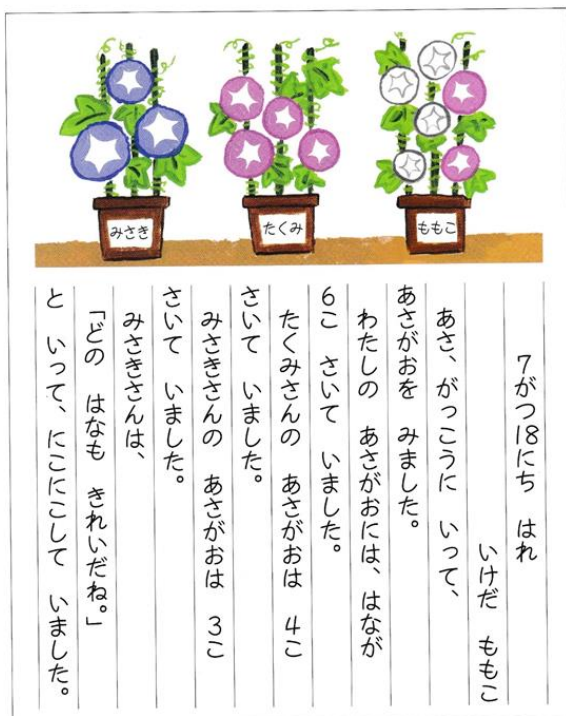 みさき
たくみ
ももこ
7がつ18にち はれ
いけだ ももこ
あさ、がっこうに いって、
あさがおを みました。
わたしの あさがおには、はなが
6こ さいて いました。
たくみさんの あさがおは 4こ
さいて いました。
みさきさんの あさがおは 3こ
さいて いました。
みさきさんは、
「どの はなも きれいだね。」
と いって、にこにこして いました。